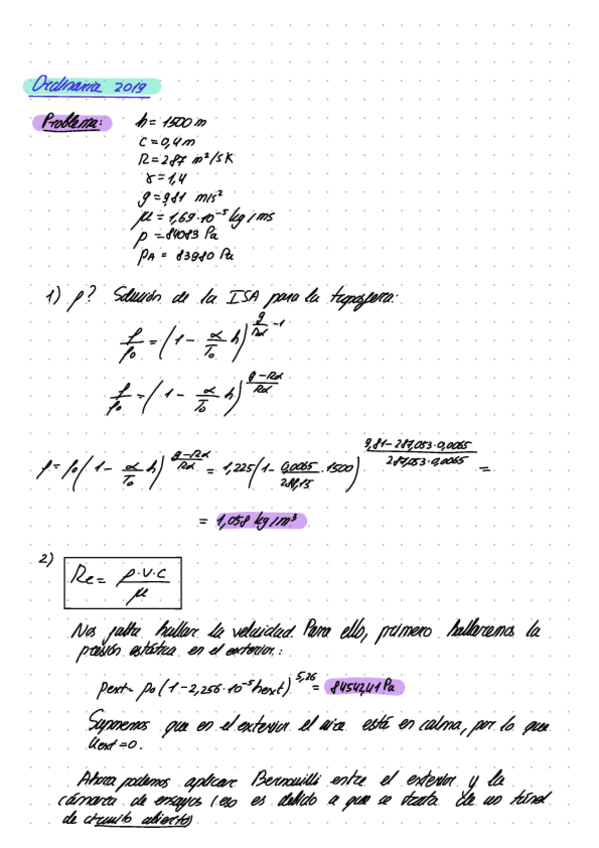 Ordinaria 2019
Problema:
h = 1500 m
c = 0,4 m
R = 287 m²/s K
γ = 1,4
g = 9,81 m/s²
μ = 1,69·10⁻⁵ kg/ms
p = 84083 Pa
pA = 83980 Pa
1) ρ? Solución de la ISA para la troposfera:
ρ/ρ0 = (1 - α/T0 h)^(g/Rα - 1)
ρ/ρ0 = (1 - α/T0 h)^((g-Rα)/Rα)
ρ = ρ0 (1 - α/T0 h)^((g-Rα)/Rα) = 1,225 (1 - 0,0065/288,15 · 1500)^((9,81 - 287,053·0,0065)/(287,053·0,0065)) =
= 1,058 kg/m³
2) Re = ρ·v·c/μ
Nos falta hallar la velocidad. Para ello, primero hallaremos la
presión estática en el exterior:
pext = p0 (1 - 2,256·10⁻⁵ hext)^5,26 = 84542,41 Pa
Suponemos que en el exterior el aire está en calma, por lo que
uext = 0.
Ahora podemos aplicar Bernouilli entre el exterior y la
cámara de ensayos (eso es debido a que se trata de un túnel
de circuito abierto)